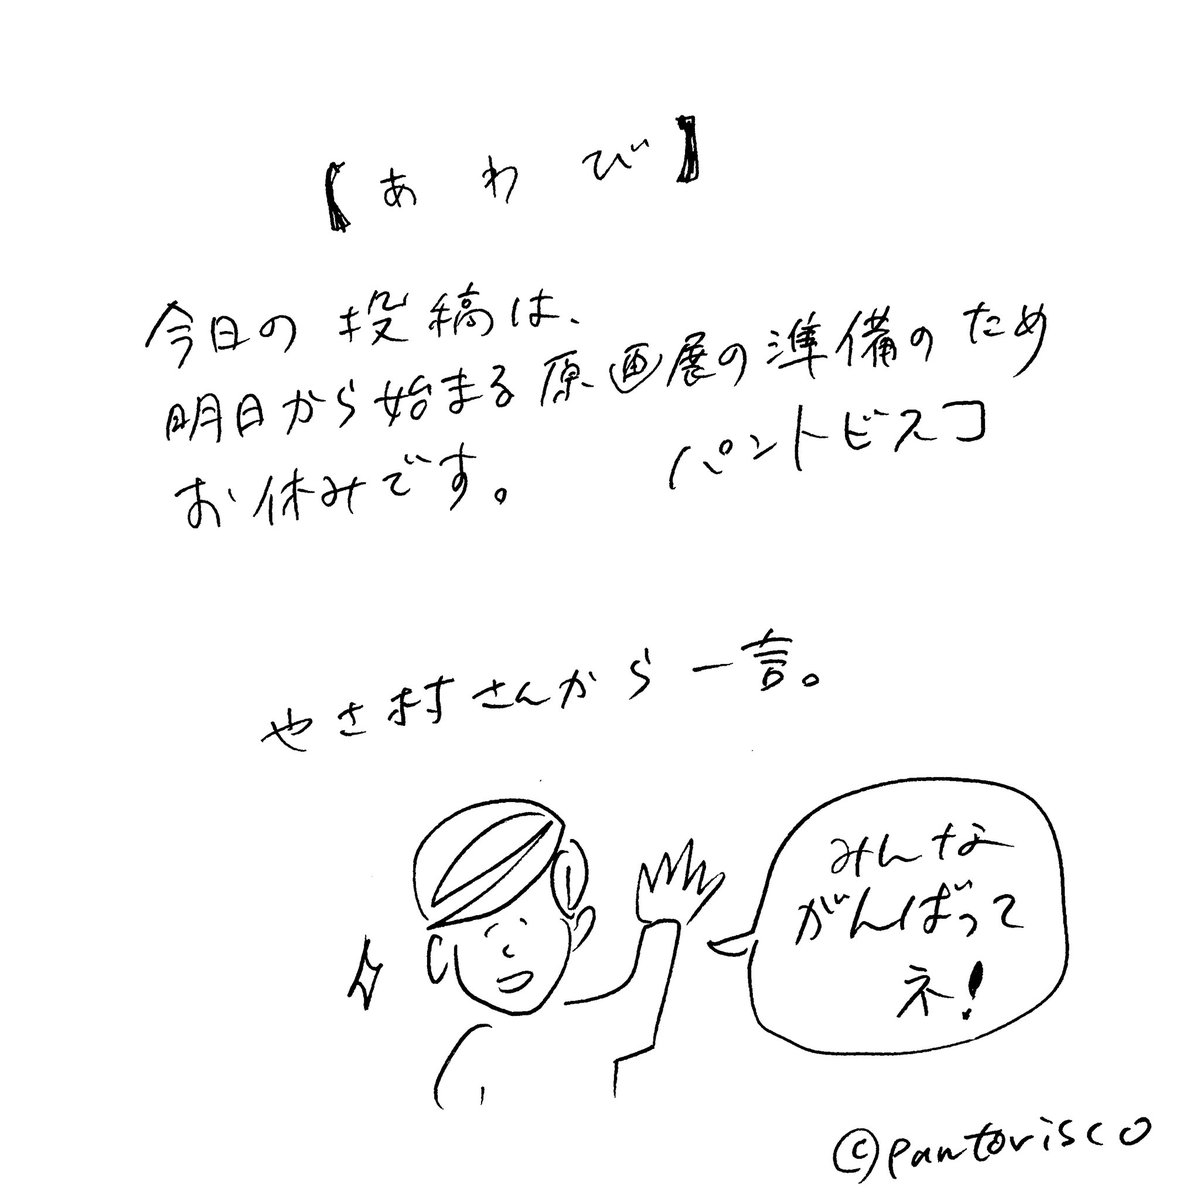 【あわび】
今日の投稿は、
明日から始まる原画展の準備のため
お休みです。 パントビスコ
やさ村さんから一言。
みんな
がんばって
ネ!
©pantovisco